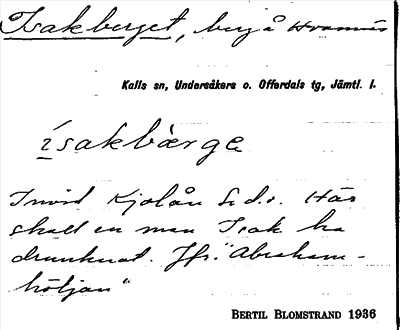 Isakberget, berg å Hvamnäs
Kalls sn, Undersåkers o. Offerdals tg, Jämtl. l.
ísakbàrge
Invid Kjolån S. d.o. Här
skall en man Isak ha
drunknat. Jfr. "Abraham-
höljan"
BERTIL BLOMSTRAND 1936